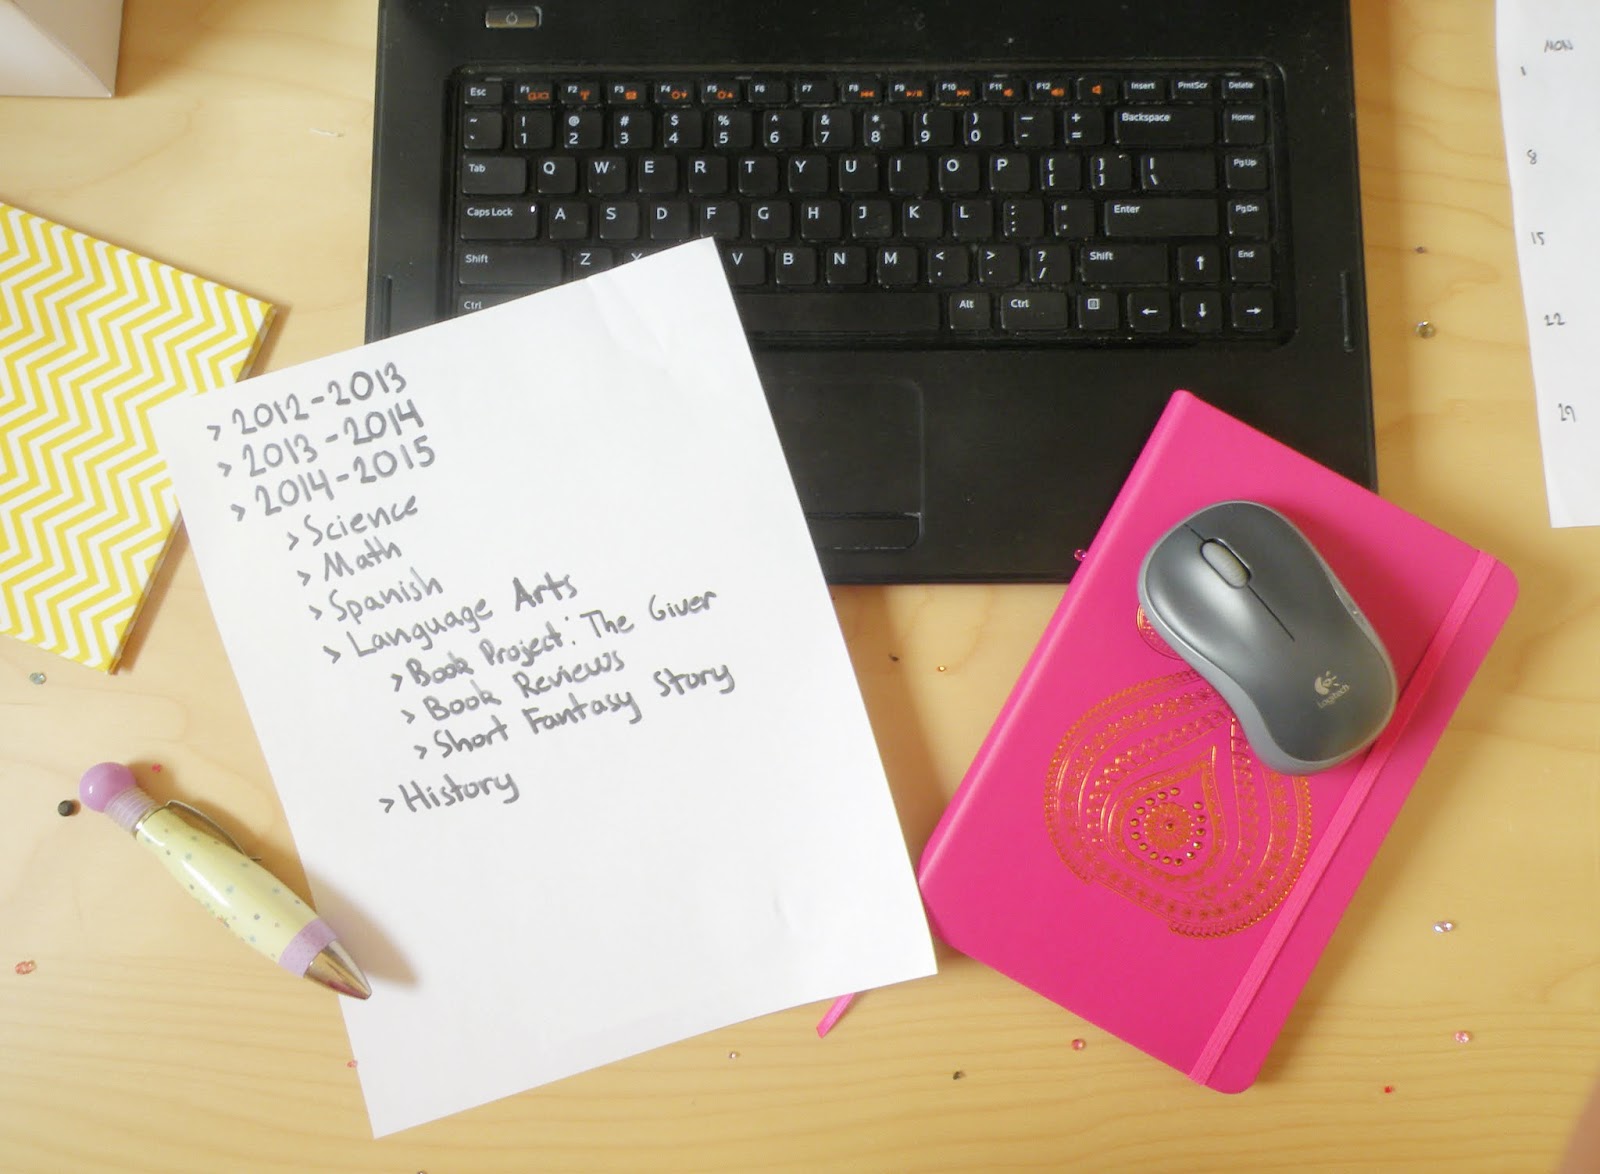 Esc F1 F2 F3 F4 F5 F6 F7 F8 F9 F10 F11 F12 Insert PrntScr Delete
~ ! @ # $ % ^ & * ( ) — + Backspace Home
` 1 2 3 4 5 6 7 8 9 0 - =
Tab Q W E R T Y U I O P { } | PgUp
[ ] \
Caps Lock A S D F G H J K L : " Enter PgDn
; '
Shift Z X V B N M < > ? Shift ↑ End
, . /
Ctrl Alt Ctrl ← ↓ →
> 2012-2013
> 2013-2014
> 2014-2015
> Science
> Math
> Spanish
> Language Arts
> Book Project: The Giver
> Book Reviews
> Short Fantasy Story
> History
Logitech
MON
1
8
15
22
29